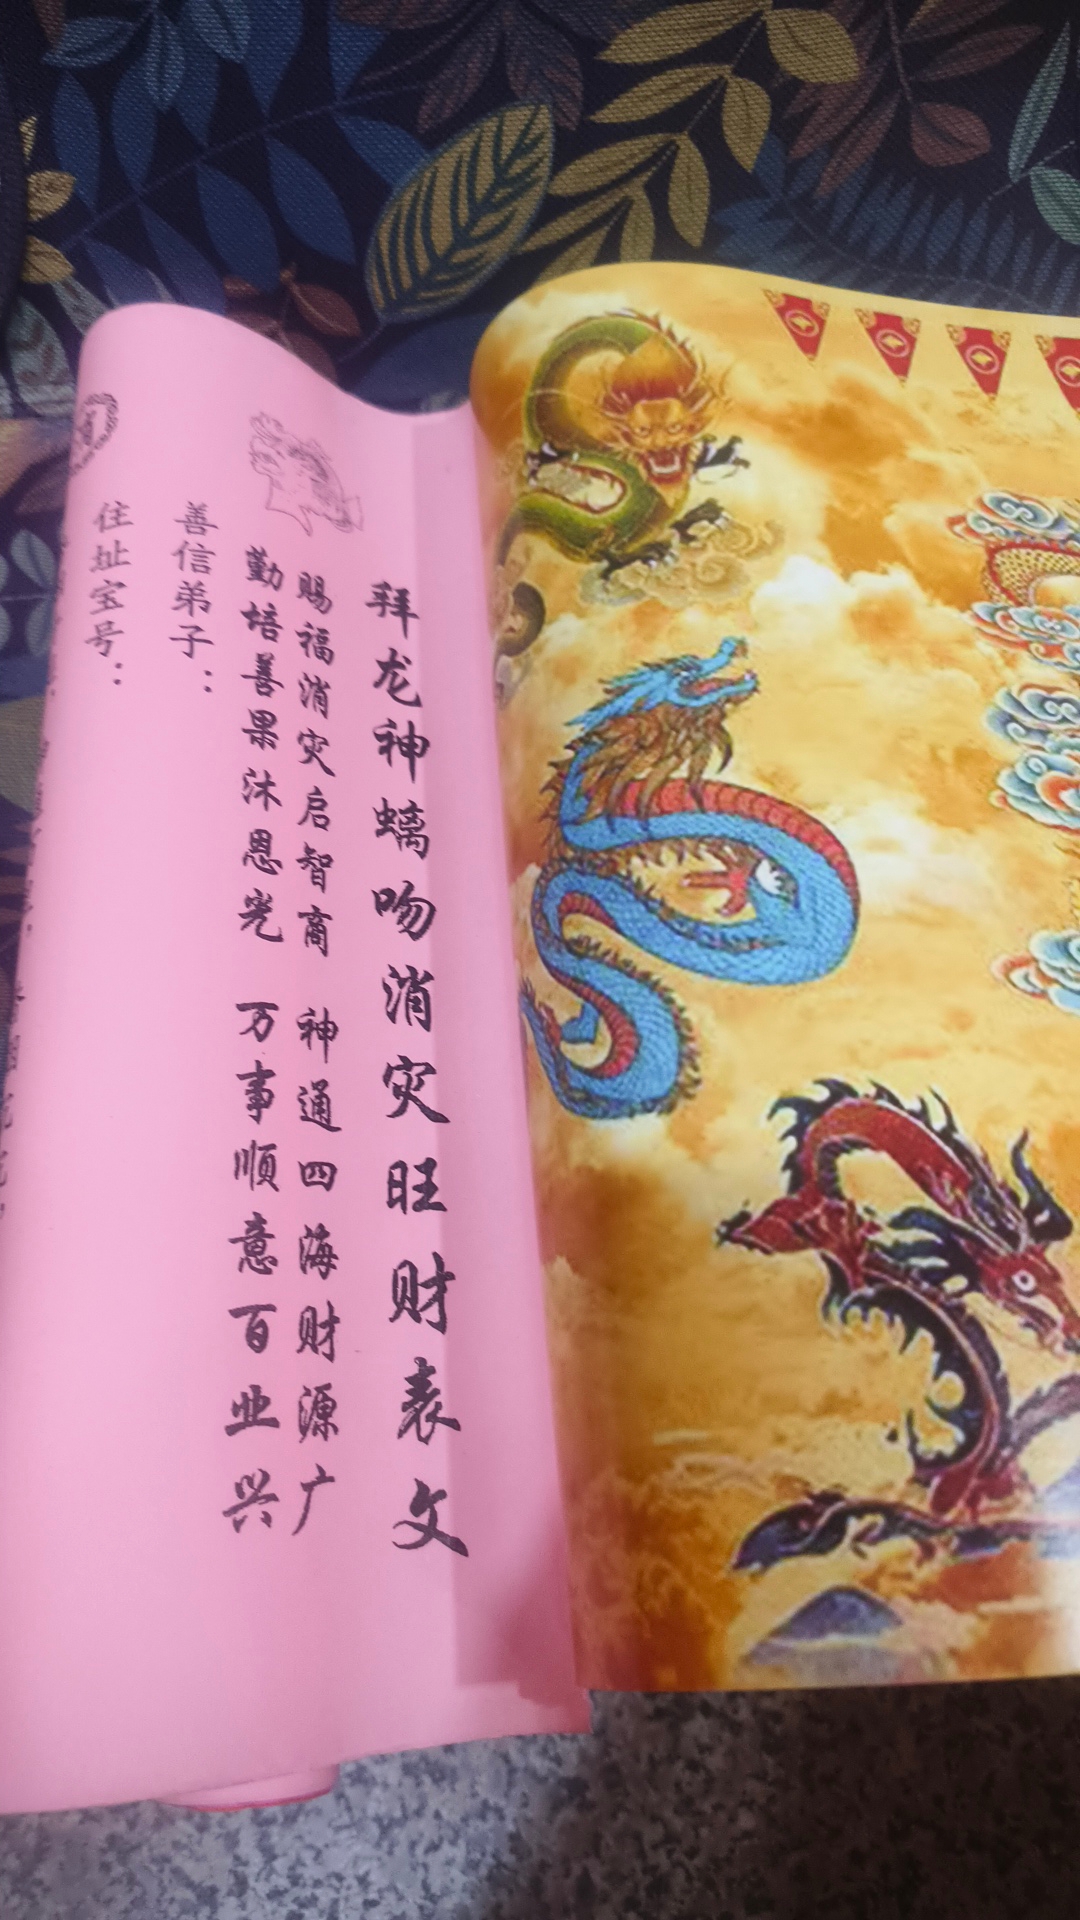 拜龙神螭吻消灾旺财表文
赐福消灾启智商 神通四海财源广
勤培善果沐恩光 万事顺意百业兴
善信弟子：
住址宝号：